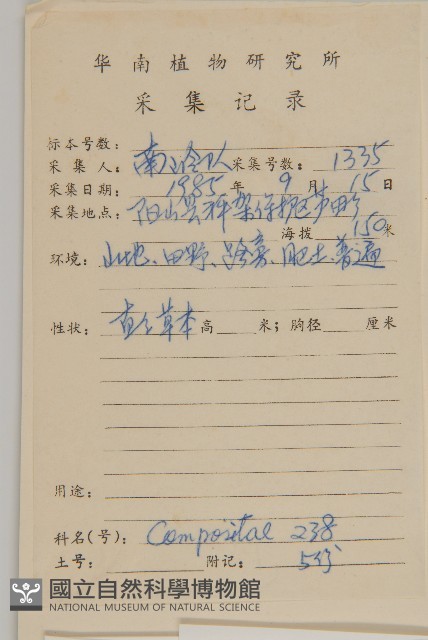 华南植物研究所
采集记录
标本号数:
采集人: 南岭队 采集号数: 1335
采集日期: 1985年9月15日
采集地点: 阳山县秤架保护区
海拨 150米
环境: 山地、田野、路旁、肥土、普遍
性状: 直立草本 高 米; 胸径 厘米
用途:
科名(号): Compositae 238
土号: 附记: 5份
國立自然科學博物館
NATIONAL MUSEUM OF NATURAL SCIENCE